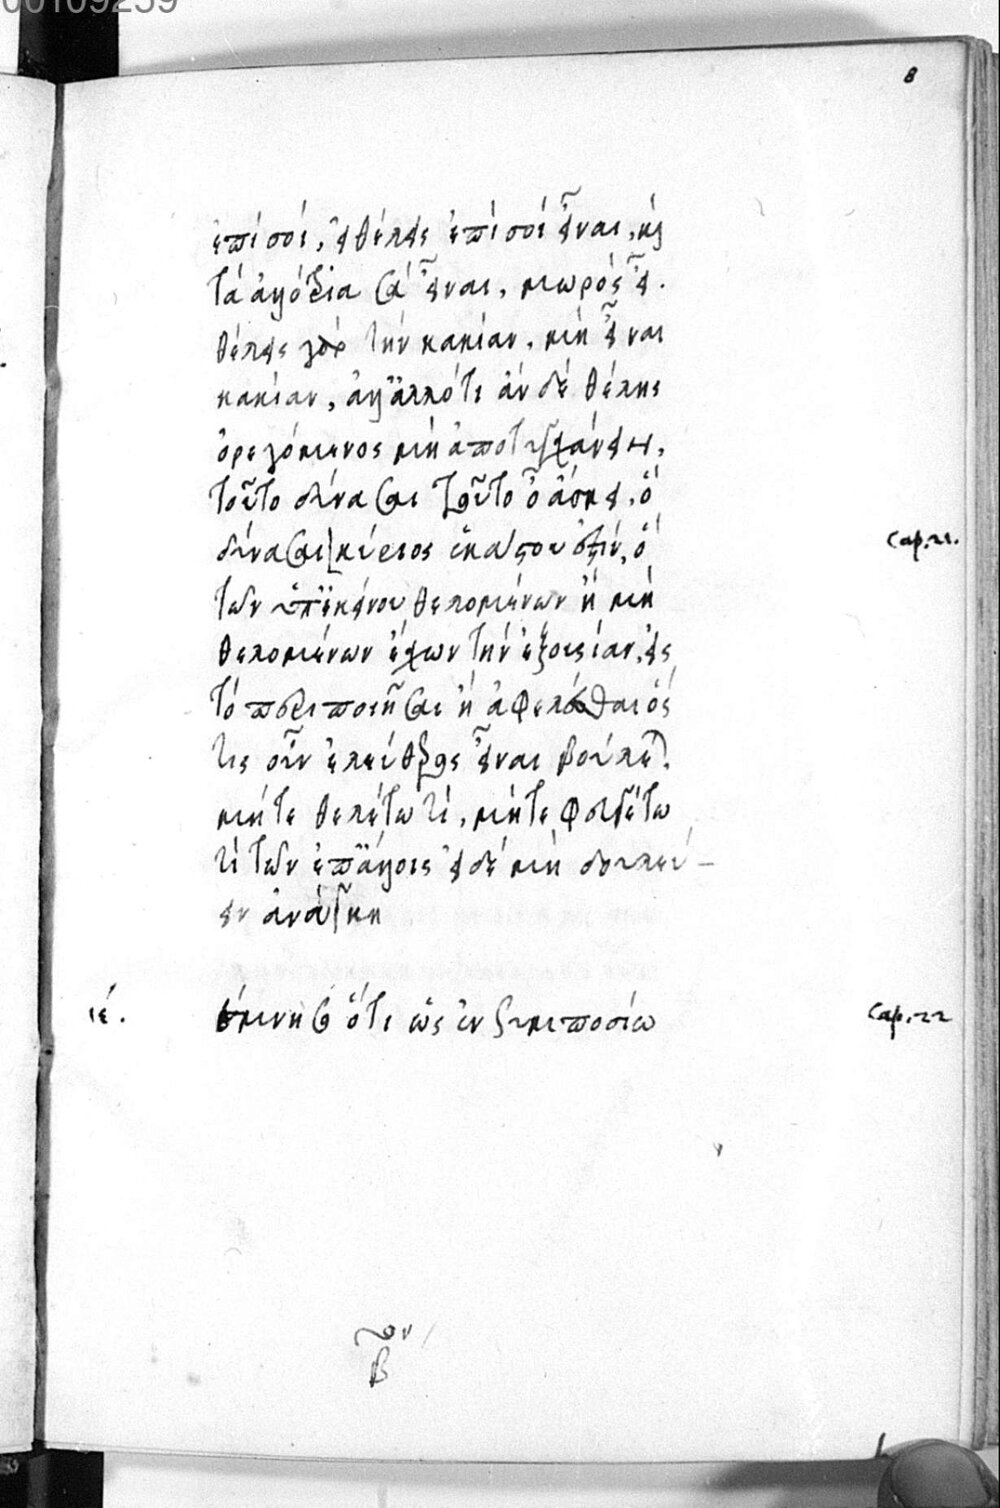 00109259
8
ἐπί σοί, θέλεις ἐπί σοί εἶναι, καὶ
τά ἀλλότρια σά εἶναι, μωρός εἶ.
θέλεις γάρ τήν κακίαν, μή εἶναι
κακίαν, ἀλλ' ἄλλό τι ἄν δέ θέλης
ὀρεγόμενος μή ἀποτυγχάνειν,
τοῦτο δύνασαι τοῦτο οὖ ἄσκει, ὅ
δύνασαι κύριος ἑκάστου ἐστίν, ὁ
cap. 21.
τῶν ὑπ' ἐκείνου θελομένων ἤ μή
θελομένων ἔχων τήν ἐξουσίαν, εἰς
τό περιποιῆσαι ἤ ἀφελέσθαι ὅς
τις οὖν ἐλεύθερος εἶναι βούλεται,
μήτε θελέτω τί, μήτε φευγέτω
τί τῶν ἐπ' ἄλλοις εἰ δέ μή δουλεύ-
ειν ἀνάγκη
ιέ.
μέμνησο ὅτι ὡς ἐν συμποσίω
cap. 22
β